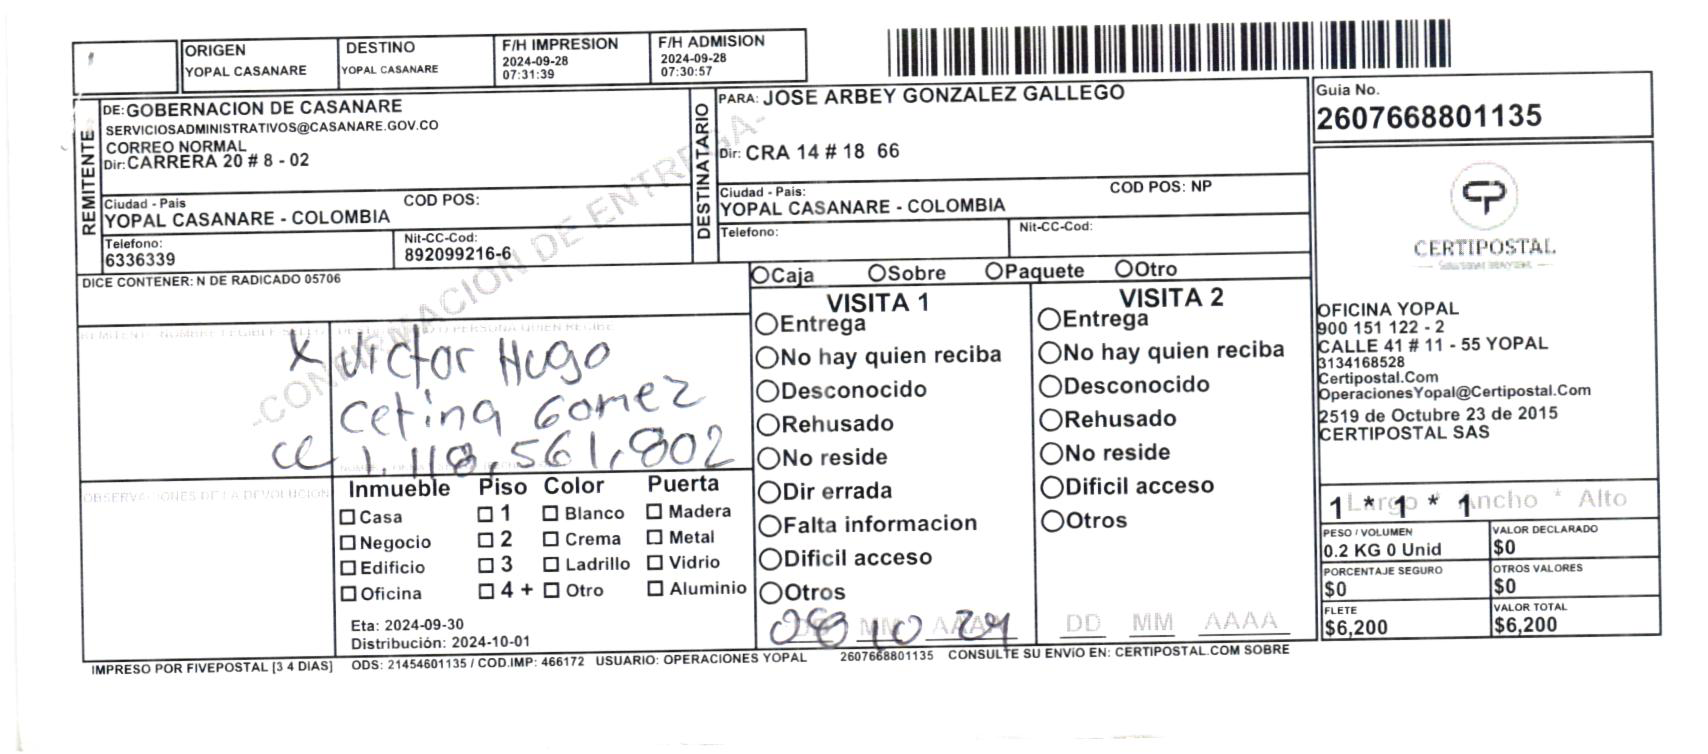 ORIGEN
YOPAL CASANARE
DESTINO
YOPAL CASANARE
F/H IMPRESION
2024-09-28
07:31:39
F/H ADMISION
2024-09-28
07:30:57
REMITENTE
DE: GOBERNACION DE CASANARE
SERVICIOSADMINISTRATIVOS@CASANARE.GOV.CO
CORREO NORMAL
Dir: CARRERA 20 # 8 - 02
Ciudad - Pais
COD POS:
YOPAL CASANARE - COLOMBIA
Telefono:
6336339
Nit-CC-Cod:
892099216-6
DESTINATARIO
PARA: JOSE ARBEY GONZALEZ GALLEGO
Dir: CRA 14 # 18 66
Ciudad - Pais:
COD POS: NP
YOPAL CASANARE - COLOMBIA
Telefono:
Nit-CC-Cod:
Guia No.
2607668801135
CERTIPOSTAL
OFICINA YOPAL
900 151 122 - 2
CALLE 41 # 11 - 55 YOPAL
3134168528
Certipostal.Com
OperacionesYopal@Certipostal.Com
2519 de Octubre 23 de 2015
CERTIPOSTAL SAS
-CONFIRMACION DE ENTREGA-
DICE CONTENER: N DE RADICADO 05706
X Victor Hugo
Cetina Gomez
CC 1,118,561,802
OBSERVACIONES DE LA DEVOLUCION
Inmueble Piso Color Puerta
Casa 1 Blanco Madera
Negocio 2 Crema Metal
Edificio 3 Ladrillo Vidrio
Oficina 4 + Otro Aluminio
Eta: 2024-09-30
Distribución: 2024-10-01
Caja Sobre Paquete Otro
VISITA 1
Entrega
No hay quien reciba
Desconocido
Rehusado
No reside
Dir errada
Falta informacion
Dificil acceso
Otros
DD MM AAAA
08 10 24
VISITA 2
Entrega
No hay quien reciba
Desconocido
Rehusado
No reside
Dificil acceso
Otros
DD MM AAAA
Largo * Ancho * Alto
1 * 1 * 1
PESO / VOLUMEN
0.2 KG 0 Unid
VALOR DECLARADO
$0
PORCENTAJE SEGURO
$0
OTROS VALORES
$0
FLETE
$6,200
VALOR TOTAL
$6,200
IMPRESO POR FIVEPOSTAL [3 4 DIAS] ODS: 21454601135 / COD.IMP: 466172 USUARIO: OPERACIONES YOPAL 2607668801135 CONSULTE SU ENVIO EN: CERTIPOSTAL.COM SOBRE